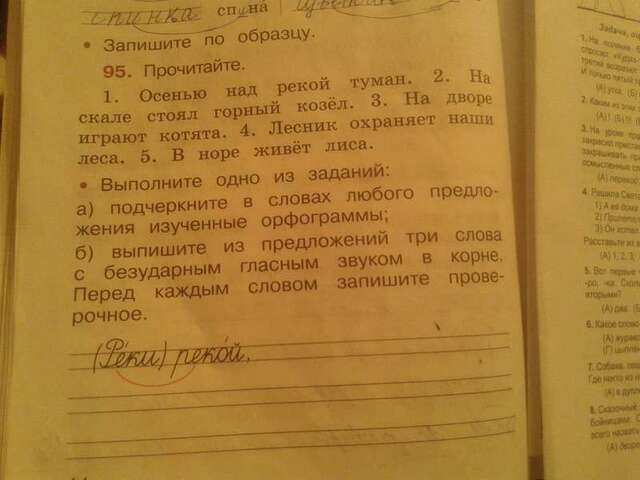 спинка спина
• Запишите по образцу.
95. Прочитайте.
1. Осенью над рекой туман. 2. На
скале стоял горный козёл. 3. На дворе
играют котята. 4. Лесник охраняет наши
леса. 5. В норе живёт лиса.
• Выполните одно из заданий:
а) подчеркните в словах любого предло-
жения изученные орфограммы;
б) выпишите из предложений три слова
с безударным гласным звуком в корне.
Перед каждым словом запишите прове-
рочное.
(Ре́ки) реко́й,
Задачи,
1. На поляне
спросил: «Куда
третка возразил
И только пятый
(А) утка (Б)
2. Какам из этих
(А) 1 (Б)
3. На уроке
закрасил
закрашивать
осмысленные
(А) перекол
4. Решила Света
1) А её дома
2) Прилепил
3) Он хотел
Расставьте их в
(А) 1, 2, 3,
5. Вот первые
-ро, -ка. Сколь
вторыми?
(А) два (Б
6. Какое слово
(А) журав
(Г) цыплён
7. Собака
Где никто из н
(А) в дупл
8. Сказочный
Бойницами С
всего назвать
(А) дворе